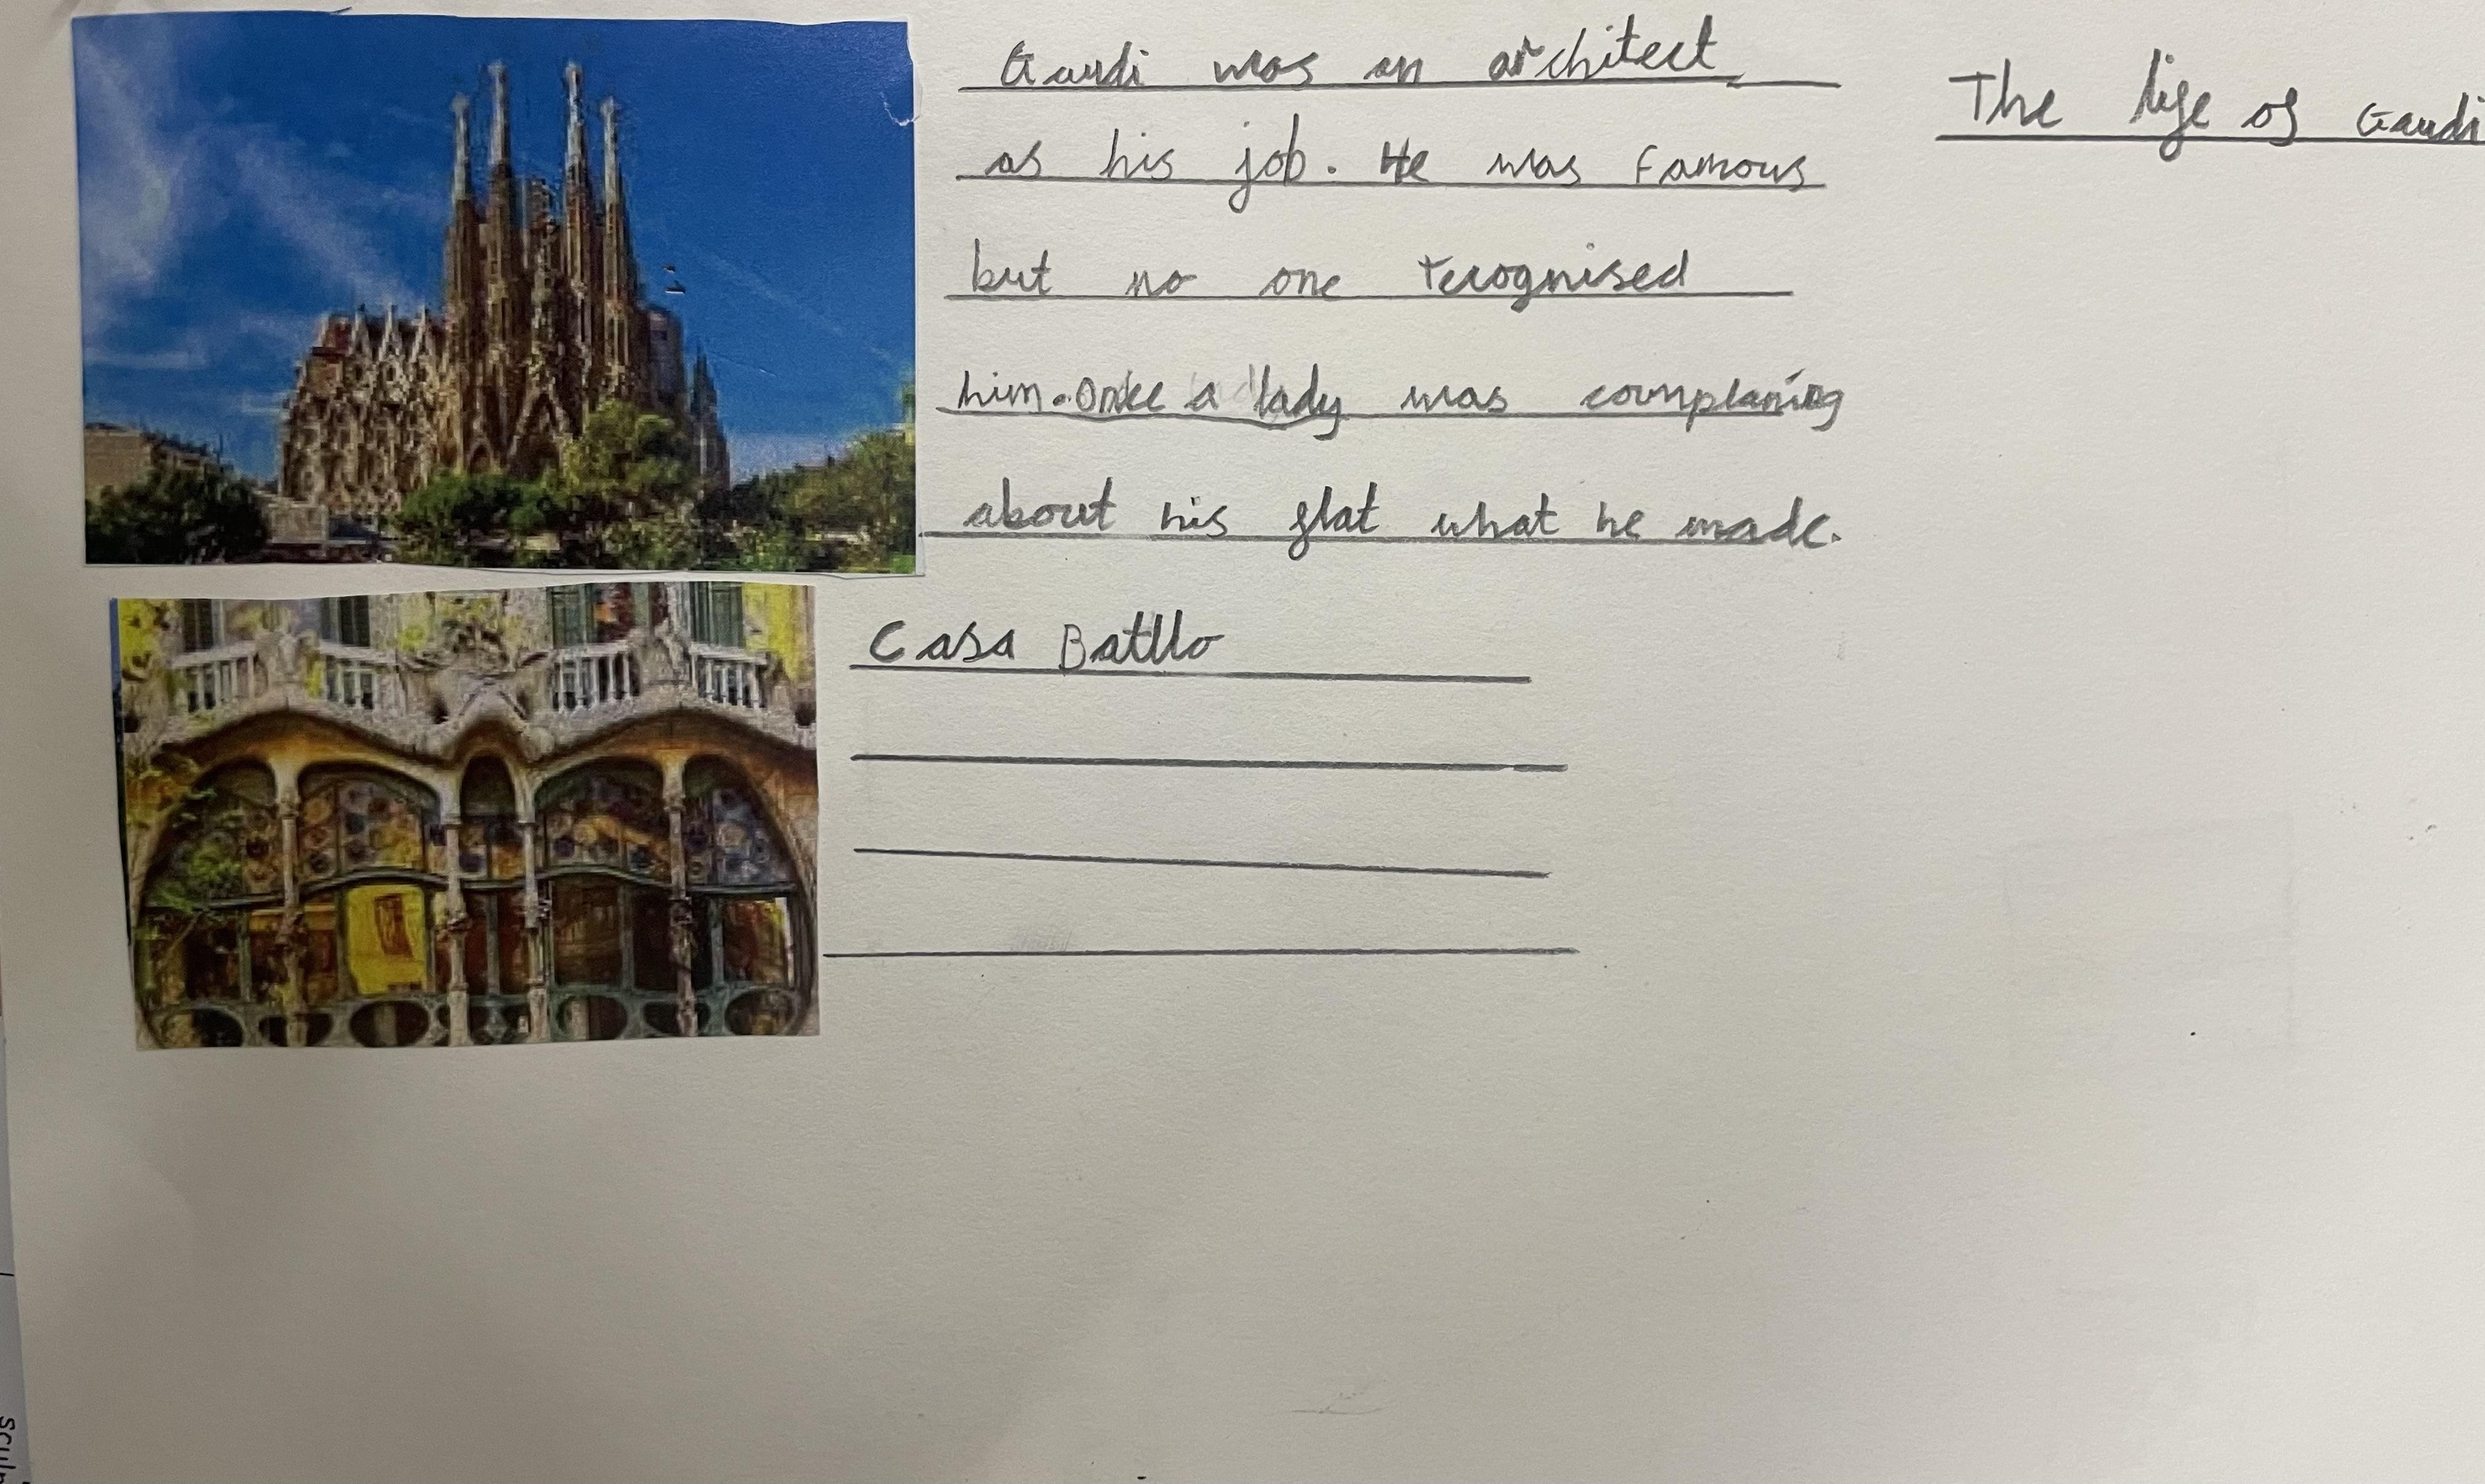 Gaudi was an architect
as his job. He was famous
but no one recognised
him. Once a lady was complaning
about his flat what he made.
The life of Gaudi
Casa Batllo